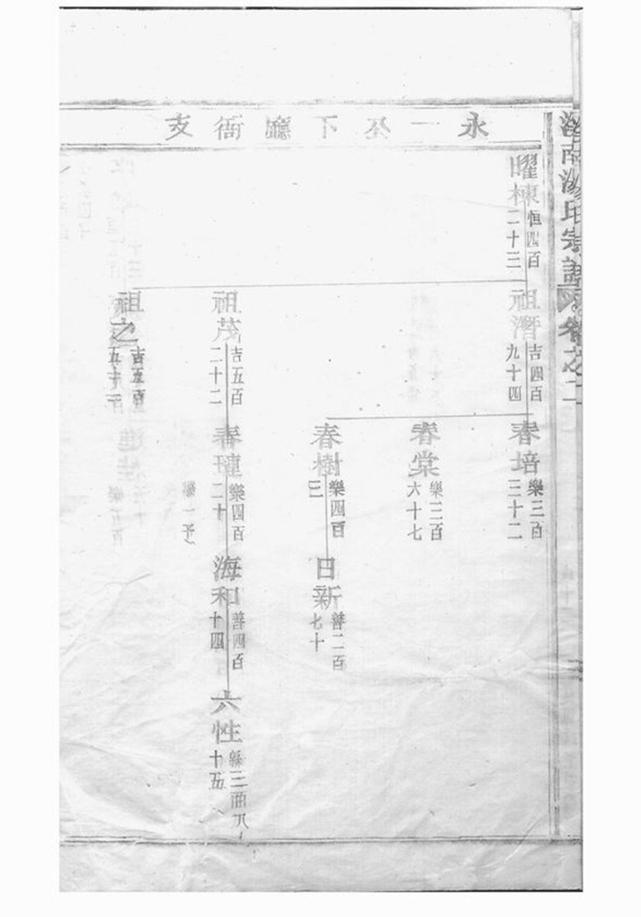 永一公下廳衙支
曜棟
恒四百
二十三
祖潛
吉四百
九十四
祖茂
吉五百
二十二
祖之
吉五百
春培
樂三百
三十二
春棠
樂三百
六十七
春樹
樂四百
三
春瑾
樂四百
二十
日新
善二百
七十
海和
善四百
十四
六性
十五